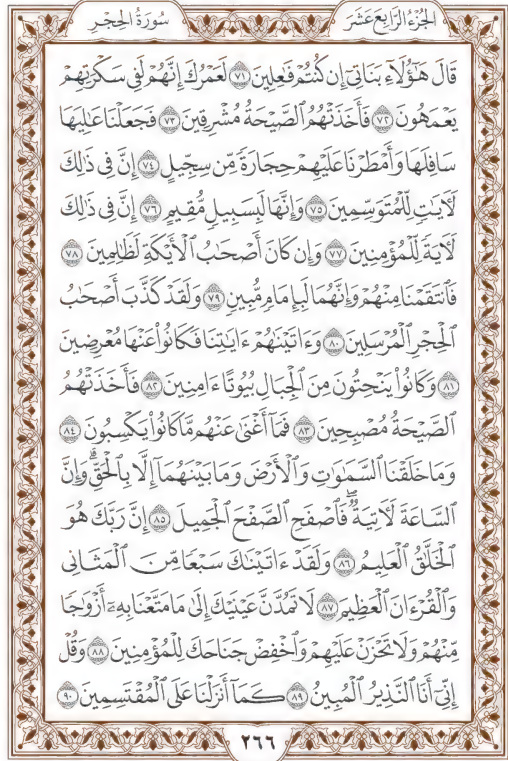 الجُزءُ الرَّابِعَ عَشَرَ
سُورَةُ الحِجۡرِ
قَالَ هَٰٓؤُلَآءِ بَنَاتِيٓ إِن كُنتُمۡ فَٰعِلِينَ ٧١ لَعَمۡرُكَ إِنَّهُمۡ لَفِي سَكۡرَتِهِمۡ
يَعۡمَهُونَ ٧٢ فَأَخَذَتۡهُمُ ٱلصَّيۡحَةُ مُشۡرِقِينَ ٧٣ فَجَعَلۡنَا عَٰلِيَهَا
سَافِلَهَا وَأَمۡطَرۡنَا عَلَيۡهِمۡ حِجَارَةٗ مِّن سِجِّيلٍ ٧٤ إِنَّ فِي ذَٰلِكَ
لَأٓيَٰتٖ لِّلۡمُتَوَسِّمِينَ ٧٥ وَإِنَّهَا لَبِسَبِيلٖ مُّقِيمٍ ٧٦ إِنَّ فِي ذَٰلِكَ
لَأٓيَةٗ لِّلۡمُؤۡمِنِينَ ٧٧ وَإِن كَانَ أَصۡحَٰبُ ٱلۡأَيۡكَةِ لَظَٰلِمِينَ ٧٨
فَٱنتَقَمۡنَا مِنۡهُمۡ وَإِنَّهُمَا لَبِإِمَامٖ مُّبِينٖ ٧٩ وَلَقَدۡ كَذَّبَ أَصۡحَٰبُ
ٱلۡحِجۡرِ ٱلۡمُرۡسَلِينَ ٨٠ وَءَاتَيۡنَٰهُمۡ ءَايَٰتِنَا فَكَانُواْ عَنۡهَا مُعۡرِضِينَ
٨١ وَكَانُواْ يَنۡحِتُونَ مِنَ ٱلۡجِبَالِ بُيُوتًا ءَامِنِينَ ٨٢ فَأَخَذَتۡهُمُ
ٱلصَّيۡحَةُ مُصۡبِحِينَ ٨٣ فَمَآ أَغۡنَىٰ عَنۡهُم مَّا كَانُواْ يَكۡسِبُونَ ٨٤
وَمَا خَلَقۡنَا ٱلسَّمَٰوَٰتِ وَٱلۡأَرۡضَ وَمَا بَيۡنَهُمَآ إِلَّا بِٱلۡحَقِّۗ وَإِنَّ
ٱلسَّاعَةَ لَأٓتِيَةٞۖ فَٱصۡفَحِ ٱلصَّفۡحَ ٱلۡجَمِيلَ ٨٥ إِنَّ رَبَّكَ هُوَ
ٱلۡخَلَّٰقُ ٱلۡعَلِيمُ ٨٦ وَلَقَدۡ ءَاتَيۡنَٰكَ سَبۡعٗا مِّنَ ٱلۡمَثَانِي
وَٱلۡقُرۡءَانَ ٱلۡعَظِيمَ ٨٧ لَا تَمُدَّنَّ عَيۡنَيۡكَ إِلَىٰ مَا مَتَّعۡنَا بِهِۦٓ أَزۡوَٰجٗا
مِّنۡهُمۡ وَلَا تَحۡزَنۡ عَلَيۡهِمۡ وَٱخۡفِضۡ جَنَاحَكَ لِلۡمُؤۡمِنِينَ ٨٨ وَقُلۡ
إِنِّيٓ أَنَا ٱلنَّذِيرُ ٱلۡمُبِينُ ٨٩ كَمَآ أَنزَلۡنَا عَلَى ٱلۡمُقۡتَسِمِينَ ٩٠
٢٦٦